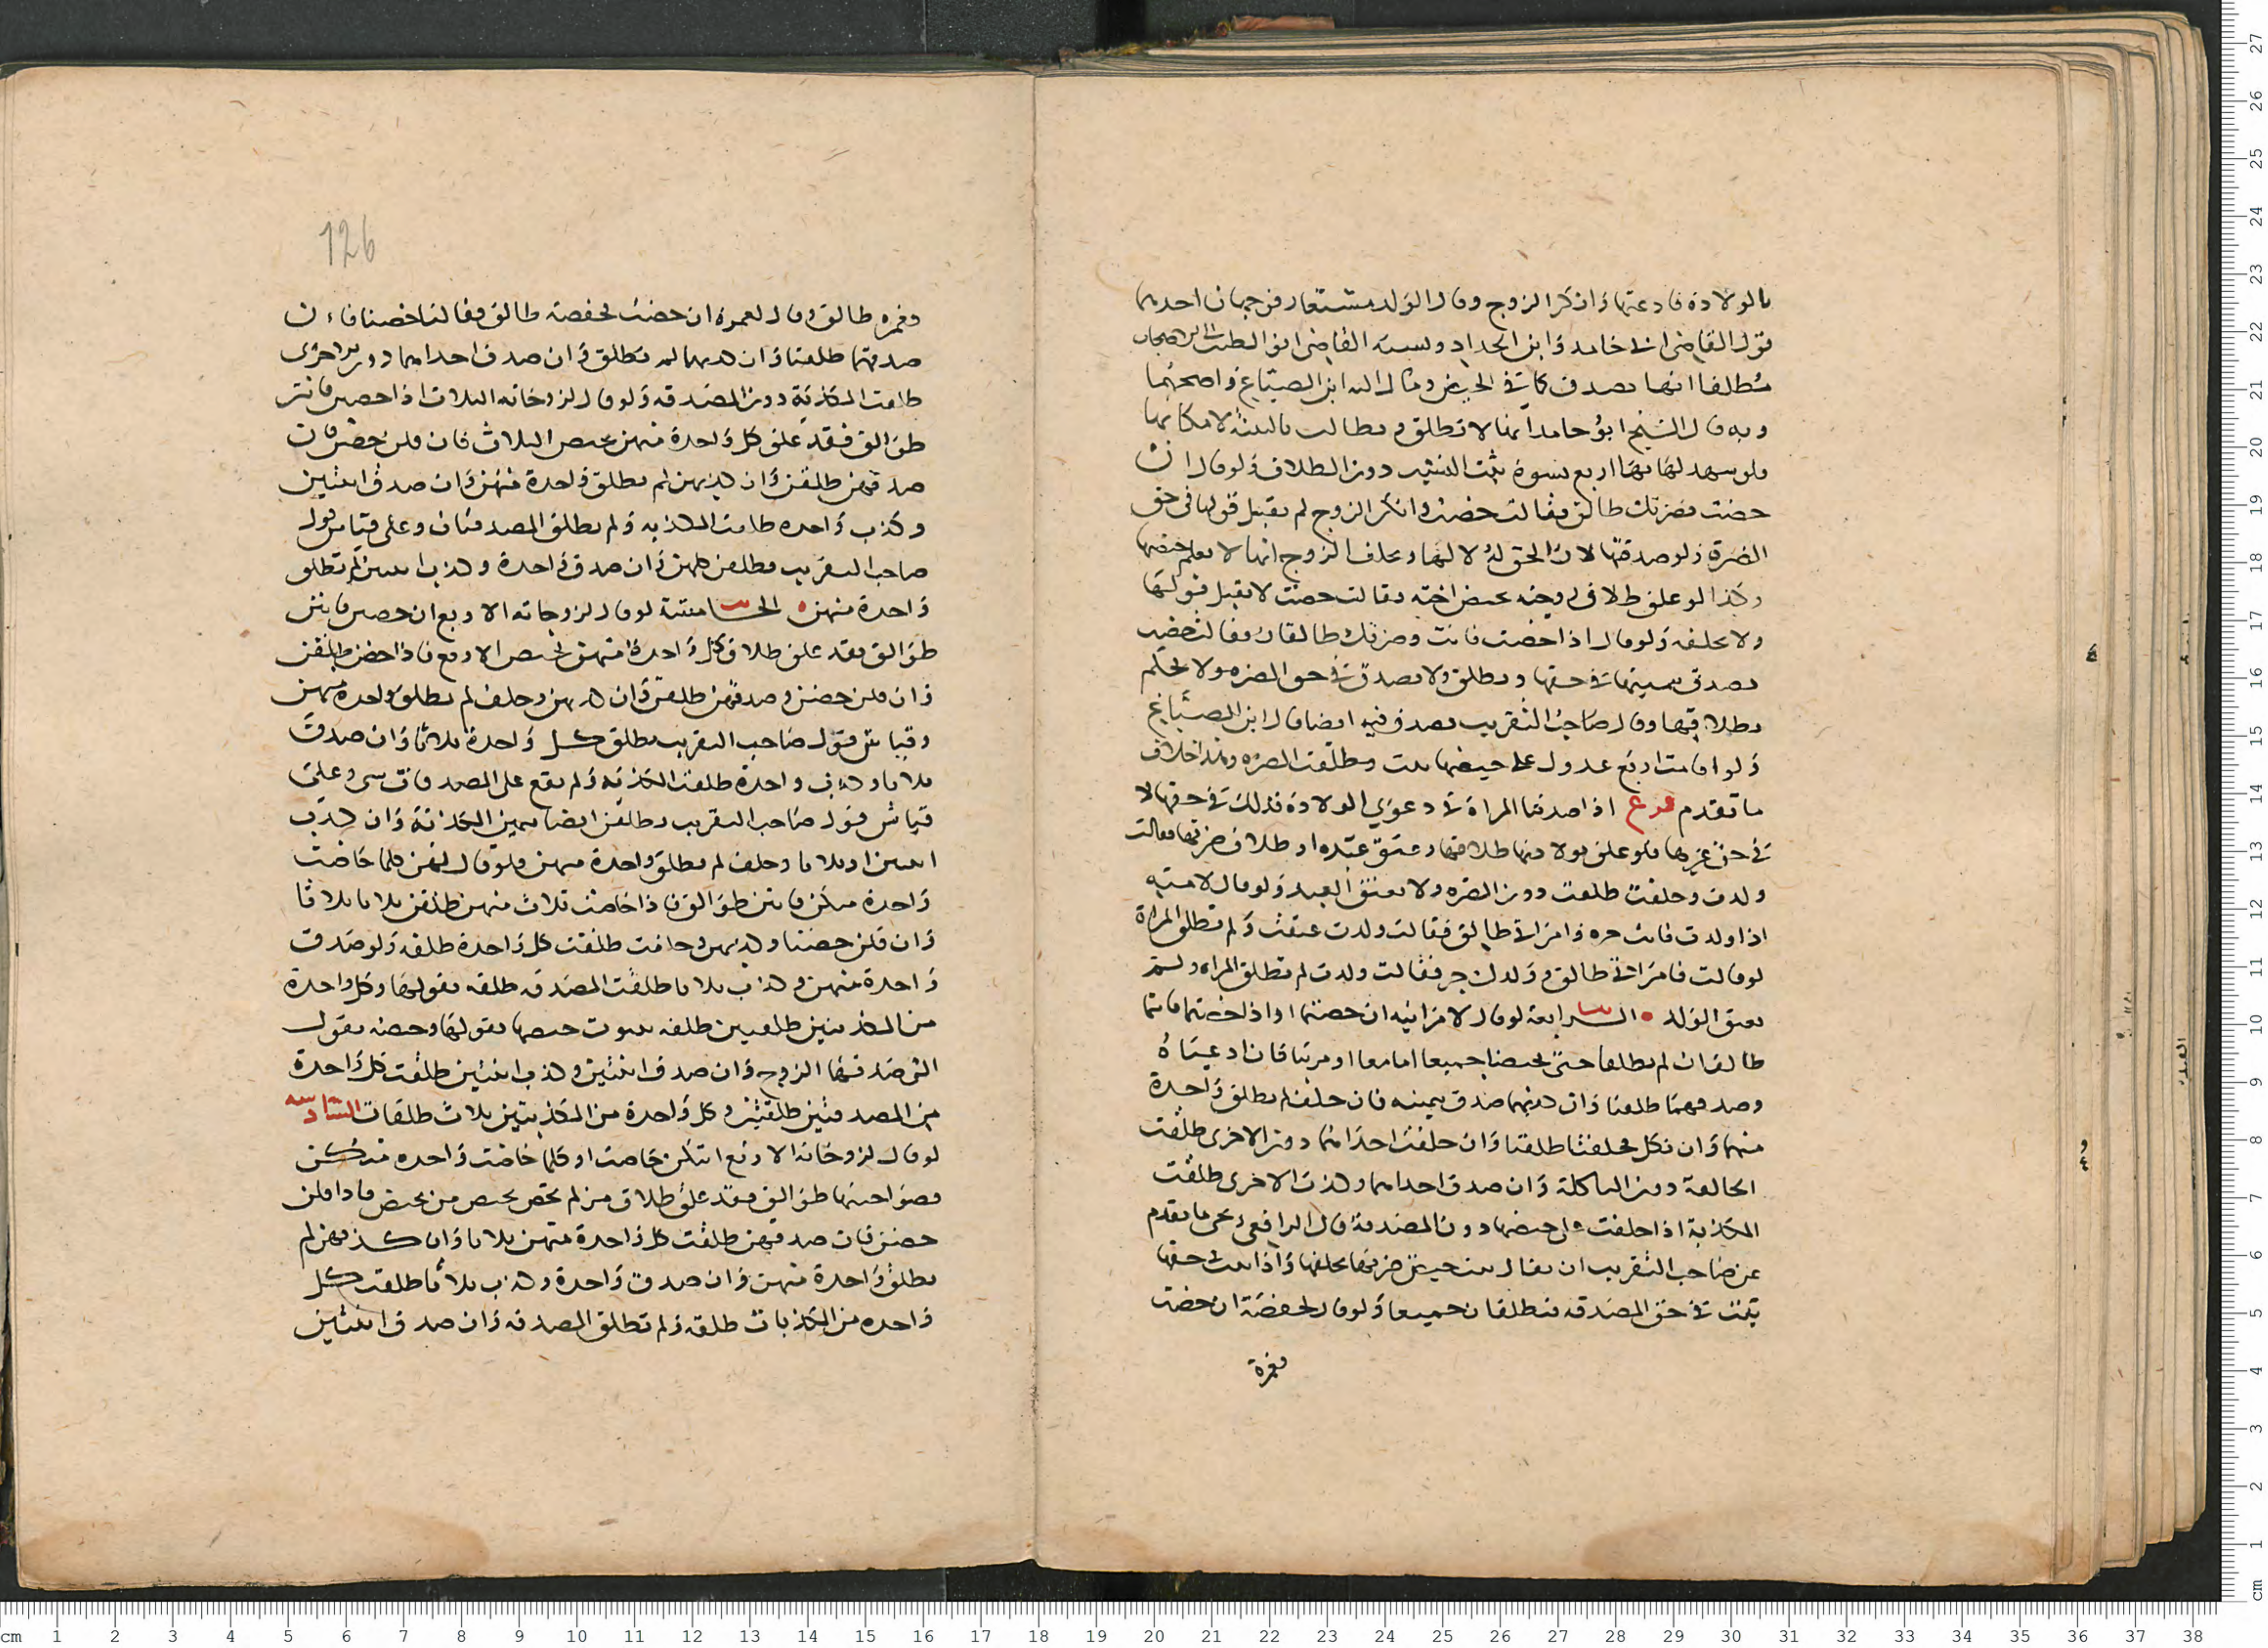 بالولادة فادعتها وانكر الزوج وقال الولد مستعار فوجهان احدهما
قول القاضي ابي حامد وابن الحداد ونسبه القاضي ابو الطيب الى الاصحاب
مطلقا انها تصدق كما في الحيض وقال ابن الصباغ واصحهما
وبه قال الشيخ ابو حامد انها لا تطلق وتطالب بالبينة لامكانها
فلو شهد لها بها اربع نسوة ثبت النسب دون الطلاق ولو قال ان
حضت فضرتك طالق فقالت حضت وانكر الزوج لم يقبل قولها في حق
الضرة ولو صدقتها لان الحق له لا لها وحلف الزوج انها لا يعلم حيضها
وكذا لو علق طلاق زوجته بحيض اختها فقالت حضت لا يقبل قولها
ولا تحلف ولو قال اذا حضت فانت وضرتك طالقان فقالت حضت
تصدق بيمينها في حقها وتطلق ولا تصدق في حق الضرة ولا يحكم
بطلاقها وقال صاحب التقريب تصدق فيه ايضا قال ابن الصباغ
ولو اقامت اربع عدول على حيضها ثبت وطلقت الضرة وهذا خلاف
ما تقدم فرع اذا صدقنا المراة في دعوى الولادة فذلك في حقها لا
في حق غيرها فلو علق بولادتها طلاقها وعتق عبده او طلاق ضرتها فقالت
ولدت وحلفت طلقت دون الضرة ولا يعتق العبد ولو قال لامته
اذا ولدت فانت حرة وامراتي طالق فقالت ولدت عتقت ولم تطلق المراة
لو قالت فامراتي طالق وولدك حر فقالت ولدت لم تطلق المراة ولم
يعتق الولد الرابعة لو قال لامراتيه ان حضتما او اذا حضتما فانتما
طالقان لم يطلقا حتى يحيضا جميعا اما معا او مرتبا فان ادعياه
وصدقهما طلقتا وان كذبهما صدق بيمينه فان حلف لم يطلق واحدة
منهما وان نكل فحلفتا طلقتا وان حلفت احداهما دون الاخرى طلقت
الحالفة دون الناكلة وان صدق احداهما وكذب الاخرى طلقت
المكذبة اذا حلفت على حيضها دون المصدقة قال الرافعي ويجي ما تقدم
عن صاحب التقريب ان يقال يثبت حيض ضرتها بحلفها واذا ثبت حقها
ثبت في حق المصدقة فتطلقان جميعا ولو قال لحفصة ان حضت
فعمرة
126
فعمرة طالق وقال لعمرة ان حضت فحفصة طالق فقالتا حضنا فان
صدقهما طلقتا وان كذبهما لم تطلق وان صدق احداهما دون الاخرى
طلقت المكذبة دون المصدقة ولو قال لزوجاته الثلاث اذا حضتن فانتن
طوالق فقد علق كل واحدة منهن بحيض الثلاث فان قلن حضن فان
صدقهن طلقن وان كذبهن لم تطلق واحدة منهن وان صدق اثنتين
وكذب واحدة طلقت المكذبة ولم تطلق المصدقتان وعلى قياس قول
صاحب التقريب يطلقن كلهن وان صدق واحدة وكذب اثنتين لم تطلق
واحدة منهن الخامسة لو قال لزوجاته الاربع ان حضتن فانتن
طوالق فقد علق طلاق كل واحدة منهن بحيض الاربع فاذا حضن طلقن
وان قلن حضن وصدقهن طلقن وان كذبهن وحلف لم تطلق واحدة منهن
وقياس قول صاحب التقريب تطلق كل واحدة ثلاثا وان صدق
ثلاثا وكذب واحدة طلقت المكذبة ولم يقع على المصدقات شي وعلى
قياس قول صاحب التقريب يطلقن ايضا بيمين المكذبة وان كذب
اثنتين او ثلاثا وحلف لم تطلق واحدة منهن ولو قال لهن كلما حاضت
واحدة منكن فانتن طوالق فاذا حاضت ثلاث منهن طلقن ثلاثا ثلاثا
وان قلن حضنا وكذبهن وحلفت طلقت كل واحدة طلقة ولو صدق
واحدة منهن وكذب ثلاثا طلقت المصدقة طلقة بقولها وكل واحدة
من المكذبتين طلقتين طلقة بثبوت حيضها بقولها وحصة بقول
التي صدقها الزوج وان صدق اثنتين وكذب اثنتين طلقت كل واحدة
من المصدقتين طلقتين وكل واحدة من المكذبتين ثلاث طلقات السادسة
لو قال لزوجاته الاربع ايتكن حاضت او كلما حاضت واحدة منكن
فصواحبها طوالق فقد علق طلاق من لم تحض بحيض من تحيض فاذا قلن
حضن فان صدقهن طلقت كل واحدة منهن ثلاثا وان كذبهن لم
تطلق واحدة منهن وان صدق واحدة وكذب ثلاثا طلقت كل
واحدة من المكذبات طلقة ولم تطلق المصدقة وان صدق اثنتين